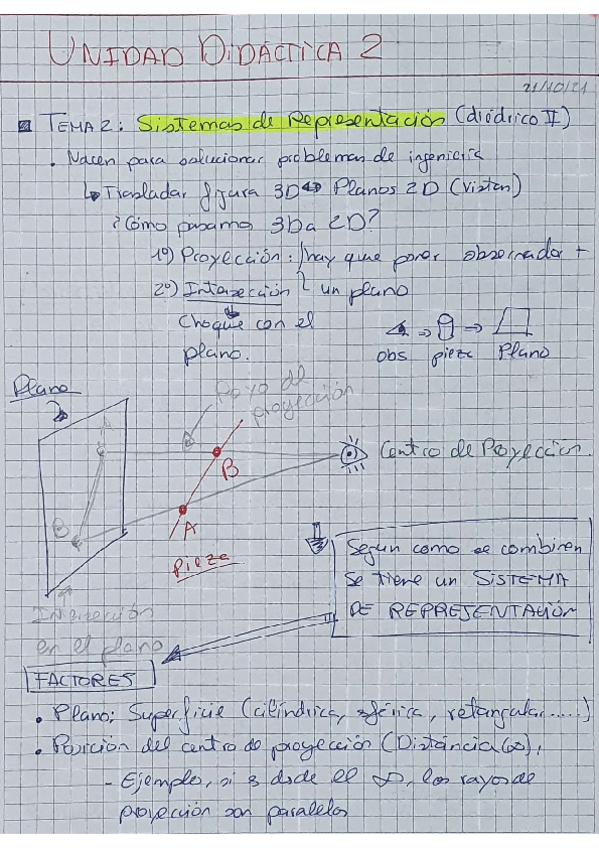 UNIDAD DIDÁCTICA 2
21/10/21
TEMA 2: Sistemas de Representación (diédrico II)
• Nacen para solucionar problemas de ingeniería
↳ Trasladar figura 3D ↔ Planos 2D (Vistas)
¿Cómo pasamos 3D a 2D?
1º) Proyección: hay que poner observador +
2º) Intersección un plano
Choque con el
plano.
obs pieza Plano
Plano
Rayo de
proyección
B
Centro de Proyección.
A
B
A
pieza
Según como se combinen
se tiene un SISTEMA
DE REPRESENTACIÓN
Intersección
en el plano
FACTORES
• Plano: Superficie (cilíndrica, esférica, retangular.....)
• Posición del centro de proyección (Distancia (∞),
- Ejemplo, si es desde el ∞, los rayos de
proyección son paralelos